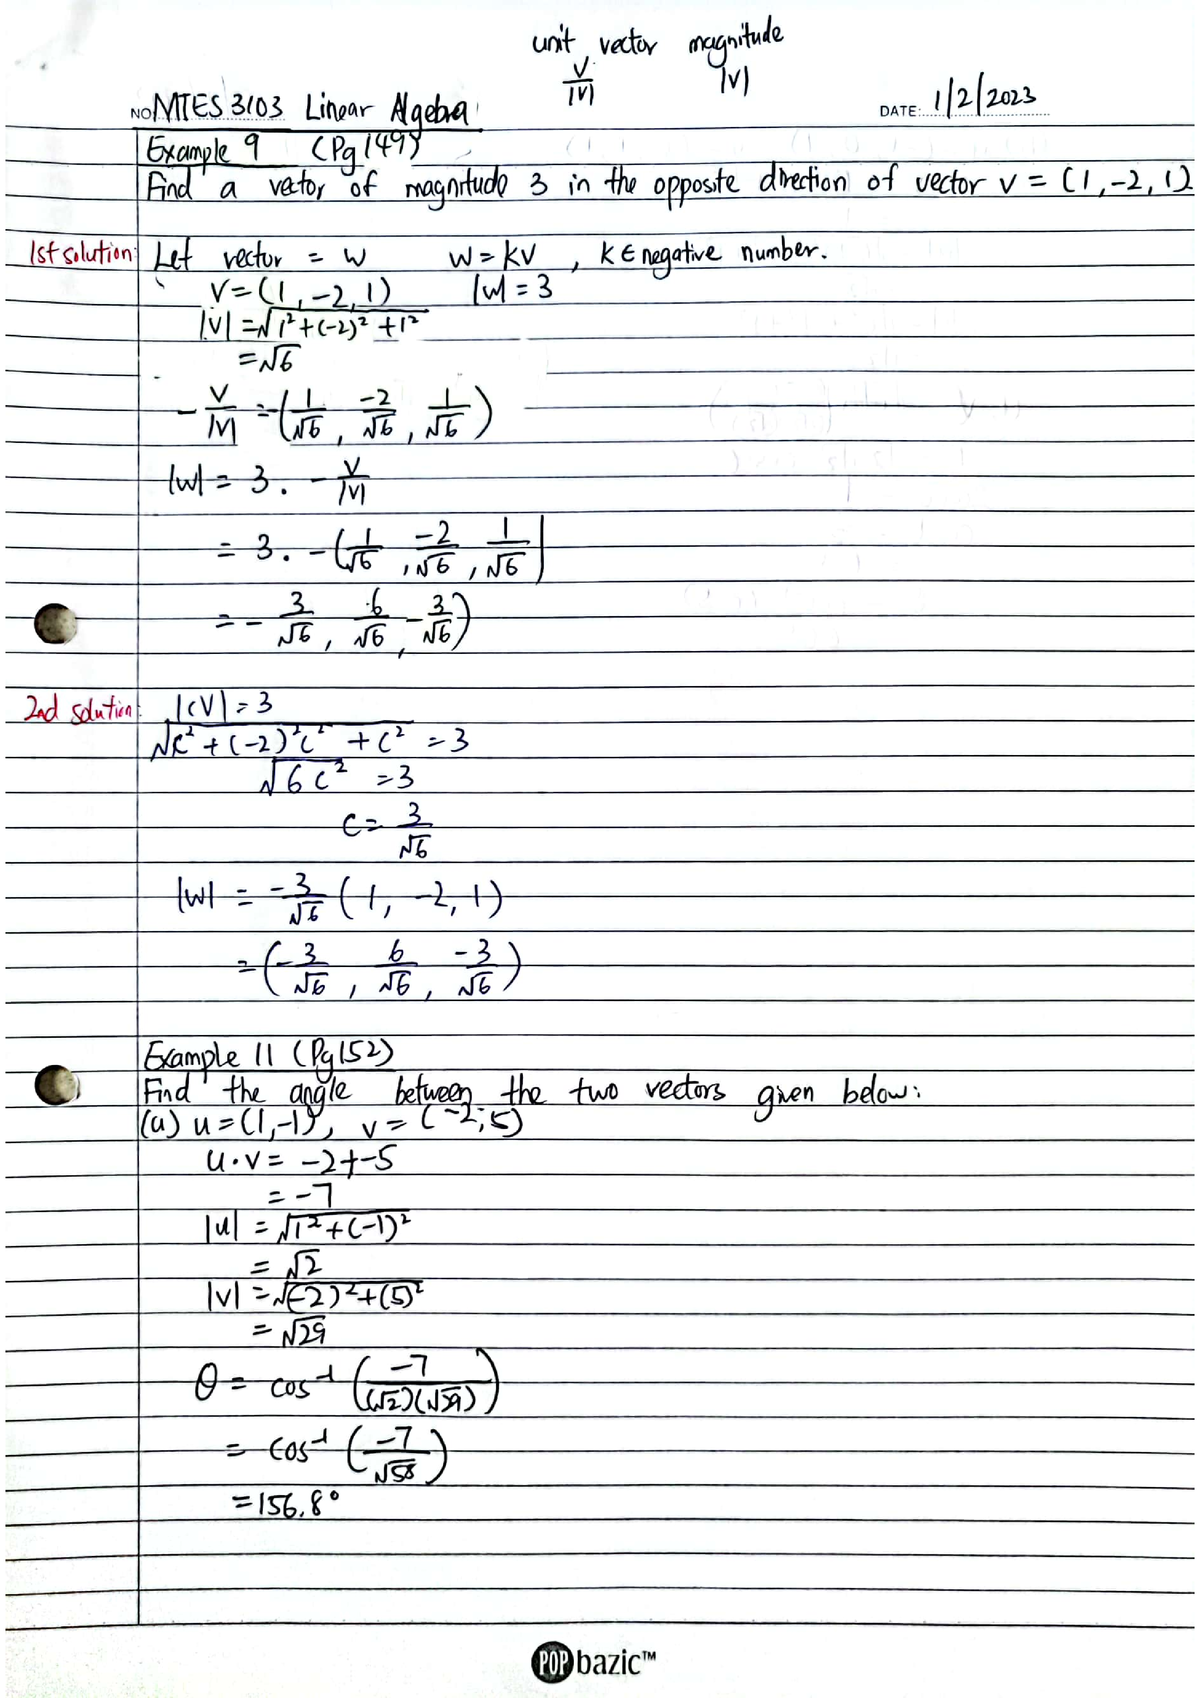 unit vector magnitude
V/|V| |V|
NO. MTES 3103 Linear Algebra DATE: 1/2/2023
Example 9 (Pg 149)
Find a vector of magnitude 3 in the opposite direction of vector v = (1, -2, 1).
1st solution: Let vector = w w = kv , k ∈ negative number.
V = (1, -2, 1) |w| = 3
|V| = √1² + (-2)² + 1²
= √6
- V/|V| = -(1/√6, -2/√6, 1/√6)
|w| = 3. - V/|V|
= 3. - (1/√6, -2/√6, 1/√6)
= - 3/√6, 6/√6, - 3/√6)
2nd solution: |cV| = 3
√c² + (-2)²c² + c² = 3
√6c² = 3
c = 3/√6
|w| = -3/√6 (1, -2, 1)
= (-3/√6, 6/√6, -3/√6)
Example 11 (Pg 152)
Find the angle between the two vectors given below:
(a) u = (1, -1), v = (-2, 5)
u . v = -2 + -5
= -7
|u| = √1² + (-1)²
= √2
|v| = √(-2)² + (5)²
= √29
θ = cos⁻¹ (-7/(√2)(√29))
= cos⁻¹ (-7/√58)
= 156.8°
POP bazic™